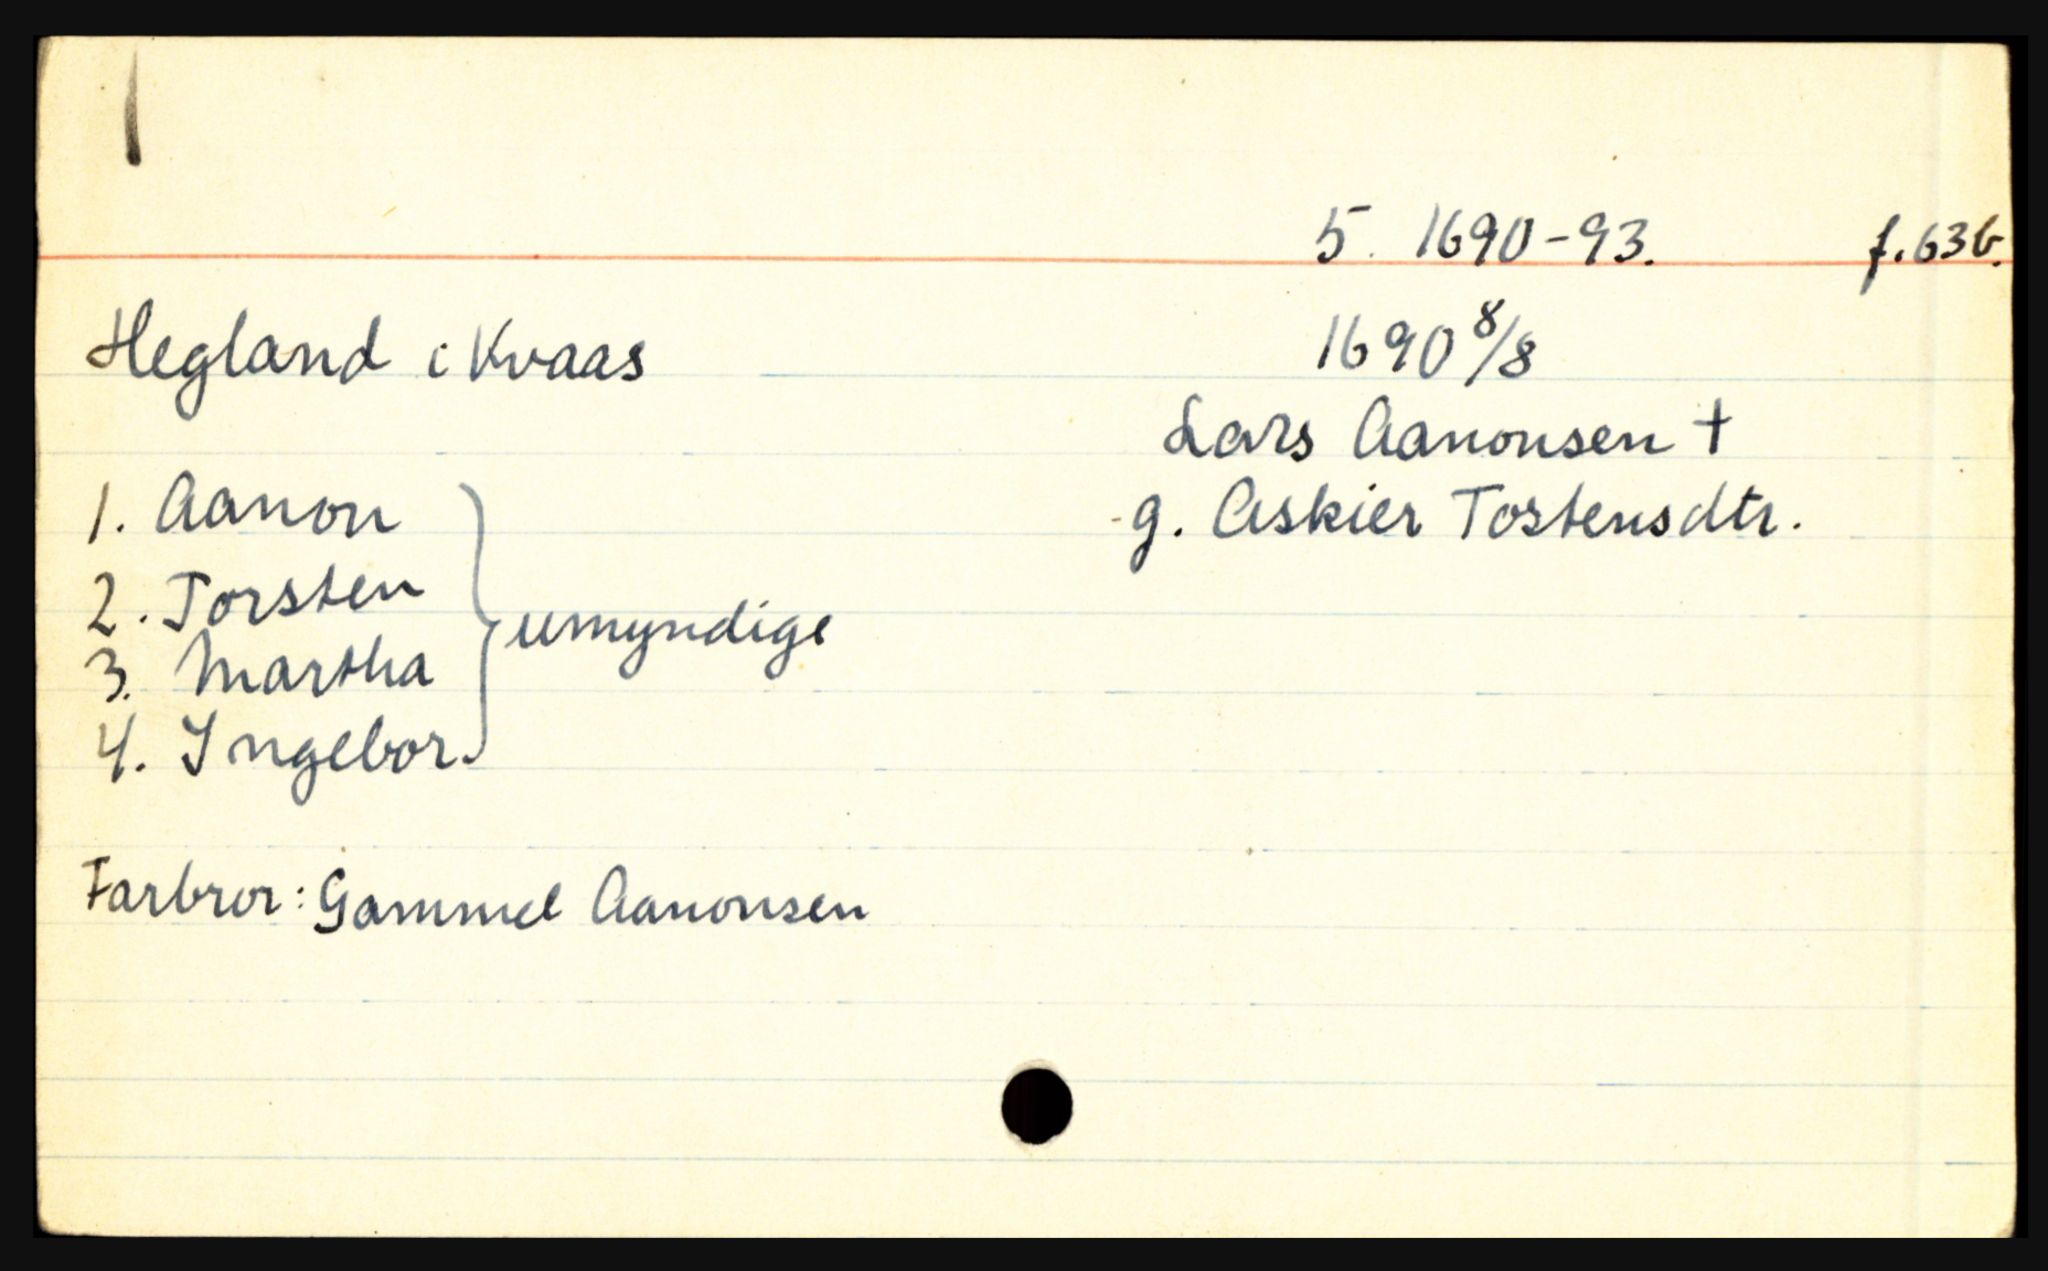 5. 1690-93. f. 63b.
Hegland i Kvaas 1690 8/8
Lars Aanonsen †
g. Askier Tostensdtr.
1. Aanon
2. Torsten
umyndige
3. Martha
4. Ingebor.
Farbror: Gammel Aanonsen